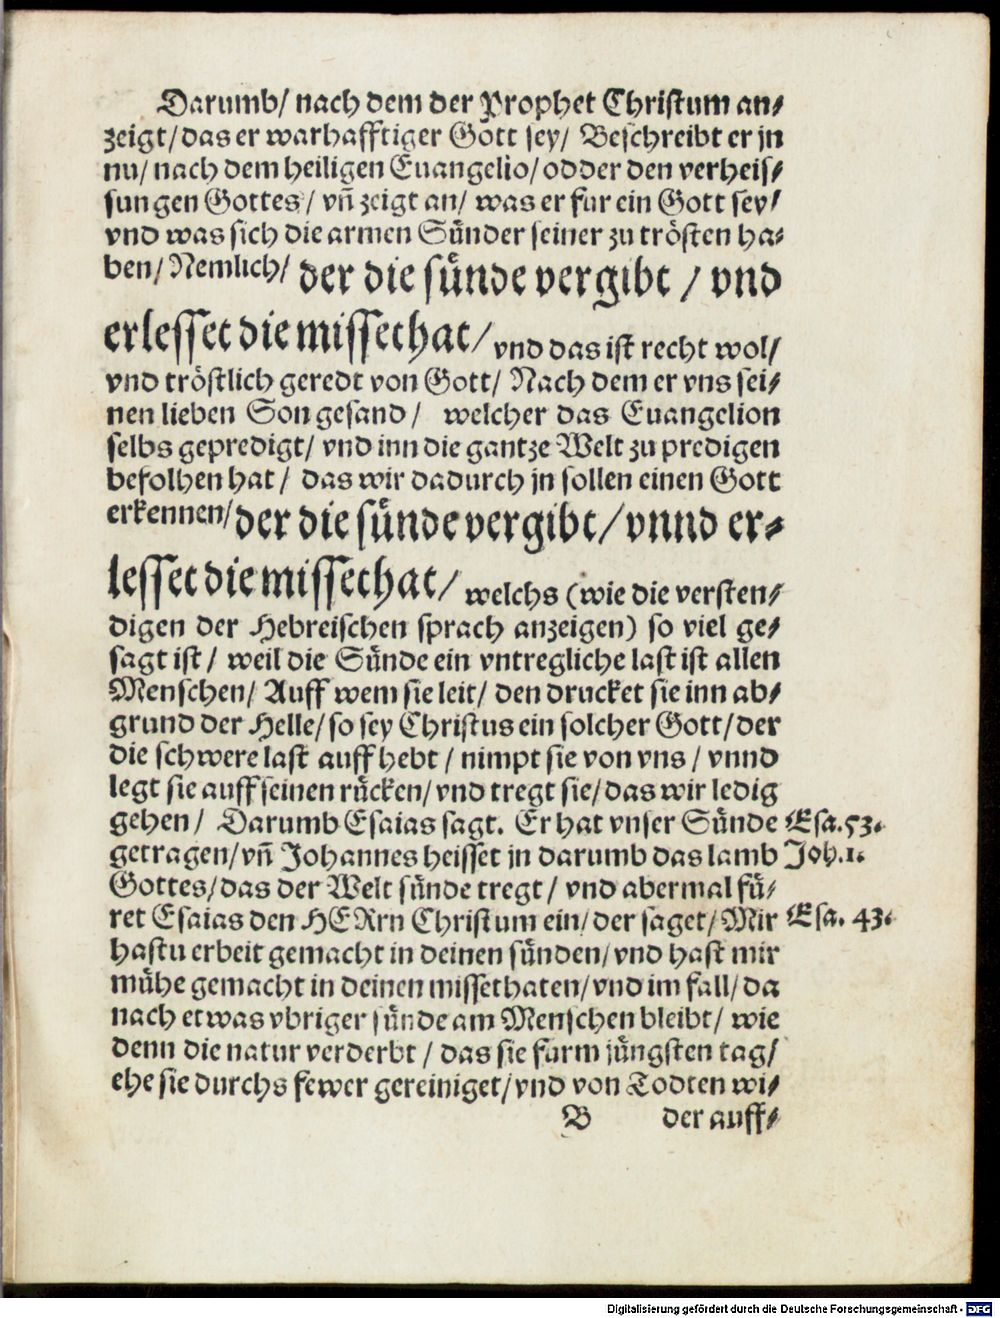 Darumb/ nach dem der Prophet Christum an⸗
zeigt/ das er warhafftiger Gott sey/ Beschreibt er jn
nu/ nach dem heiligen Euangelio/ odder den verheis⸗
sungen Gottes/ vñ zeigt an/ was er fur ein Gott sey/
vnd was sich die armen Sünder seiner zu trösten ha⸗
ben/ Nemlich/ der die sünde vergibt/ vnd
erlesset die missethat/ vnd das ist recht wol/
vnd tröstlich geredt von Gott/ Nach dem er vns sei⸗
nen lieben Son gesand/ welcher das Euangelion
selbs gepredigt/ vnd inn die gantze Welt zu predigen
befolhen hat/ das wir dadurch jn sollen einen Gott
erkennen/ der die sünde vergibt/ vnnd er⸗
lesset die missethat/ welchs (wie die versten⸗
digen der Hebreischen sprach anzeigen) so viel ge⸗
sagt ist/ weil die Sünde ein vntregliche last ist allen
Menschen/ Auff wem sie leit/ den drucket sie inn ab⸗
grund der Helle/ so sey Christus ein solcher Gott/ der
die schwere last auff hebt/ nimpt sie von vns/ vnnd
legt sie auff seinen rücken/ vnd tregt sie/ das wir ledig
gehen/ Darumb Esaias sagt. Er hat vnser Sünde Esa. 53.
getragen/ vñ Johannes heisset jn darumb das lamb Joh. 1.
Gottes/ das der Welt sünde tregt/ vnd abermal fü⸗
ret Esaias den HERrn Christum ein/ der saget/ Mir Esa. 43.
hastu erbeit gemacht in deinen sünden/ vnd hast mir
mühe gemacht in deinen missethaten/ vnd im fall/ da
nach etwas vbriger sünde am Menschen bleibt/ wie
denn die natur verderbt/ das sie furm jüngsten tag/
ehe sie durchs fewer gereiniget/ vnd von Todten wi⸗
B der auff⸗
Digitalisierung gefördert durch die Deutsche Forschungsgemeinschaft - DFG